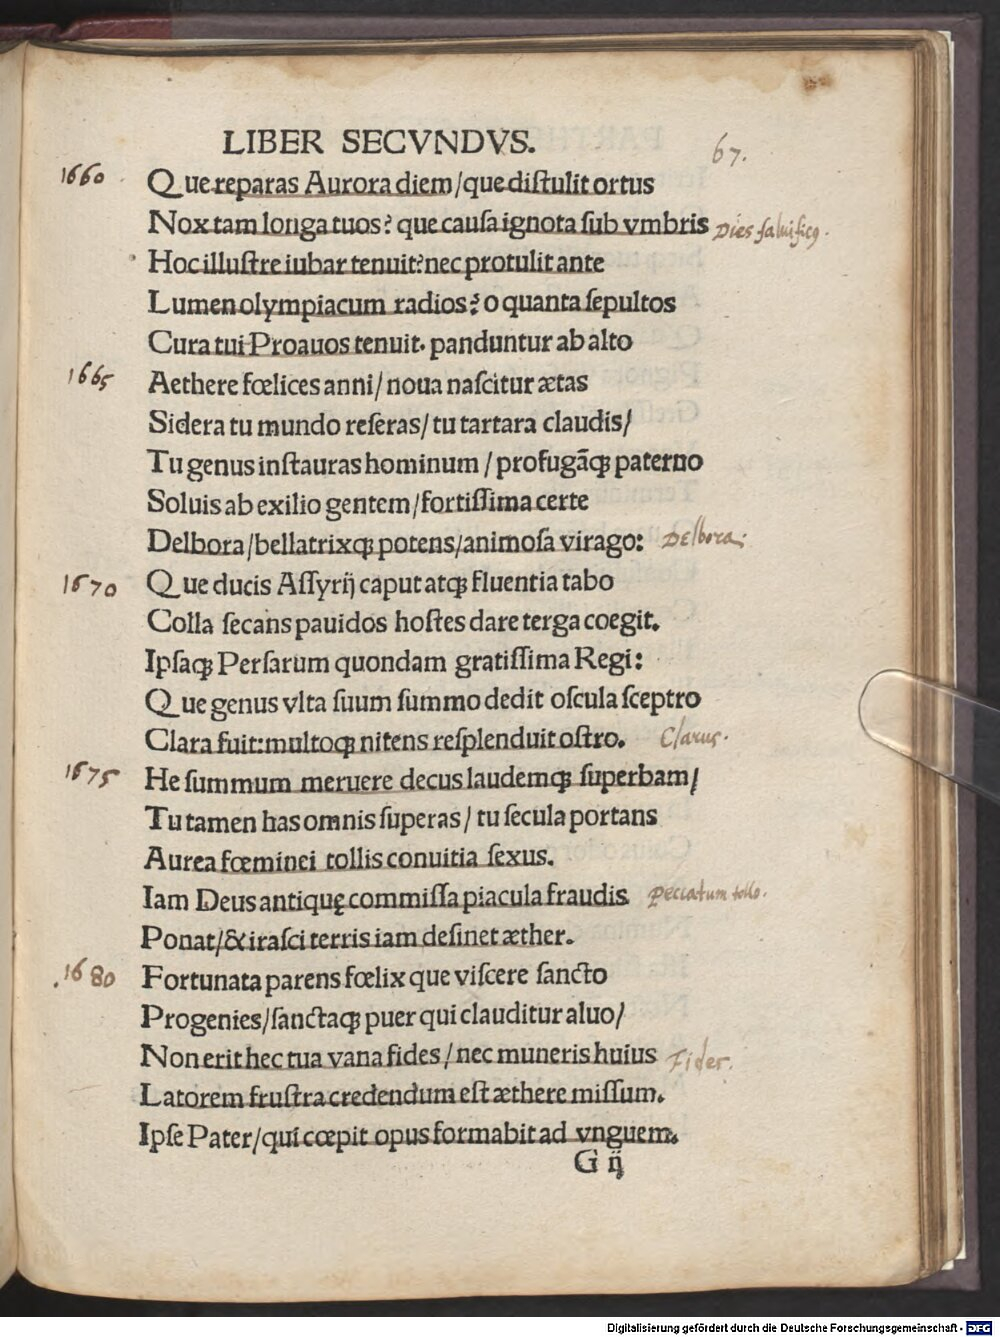 LIBER SECVNDVS.
67.
1660
Que reparas Aurora diem/que diſtulit ortus
Nox tam longa tuos? que cauſa ignota ſub vmbris
Hoc illuſtre iubar tenuit? nec protulit ante
Lumen olympiacum radios? o quanta ſepultos
Cura tui Proauos tenuit. panduntur ab alto
1665
Aethere fœlices anni/ noua naſcitur ætas
Sidera tu mundo reſeras/ tu tartara claudis/
Tu genus inſtauras hominum/ profugāqꝫ paterno
Soluis ab exilio gentem/fortiſſima certe
Delbora/bellatrixqꝫ potens/animoſa virago: Delbora:
1670
Que ducis Aſſyrij caput atqꝫ fluentia tabo
Colla ſecans pauidos hoſtes dare terga coegit.
Ipſaqꝫ Perſarum quondam gratiſſima Regi:
Que genus vlta ſuum ſummo dedit oſcula ſceptro
Clara fuit: multoqꝫ nitens reſplenduit oſtro. Clarus.
1675
He ſummum meruere decus laudemqꝫ ſuperbam/
Tu tamen has omnis ſuperas/ tu ſecula portans
Aurea fœminei tollis conuitia ſexus.
Iam Deus antiquę commiſſa piacula fraudis peccatum tollo.
Ponat/& iraſci terris iam deſinet æther.
1680
Fortunata parens fœlix que viſcere ſancto
Progenies/ſanctaqꝫ puer qui clauditur aluo/
Non erit hec tua vana fides/ nec muneris huius Fides.
Latorem fruſtra credendum eſt æthere miſſum.
Ipſe Pater/qui cœpit opus formabit ad vnguem.
G ij
Digitalisierung gefördert durch die Deutsche Forschungsgemeinschaft - DFG